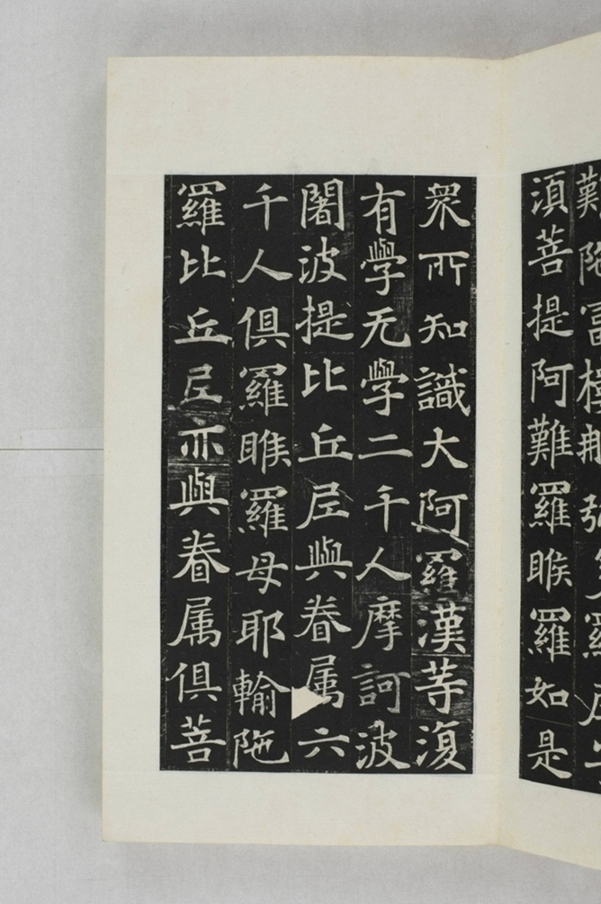 難陁富樓那弥多羅尼子
湏菩提阿難羅睺羅如是
衆所知識大阿羅漢等復
有學无學二千人摩訶波
闍波提比丘尼與眷属六
千人俱羅睺羅母耶輸陁
羅比丘尼亦與眷属俱菩